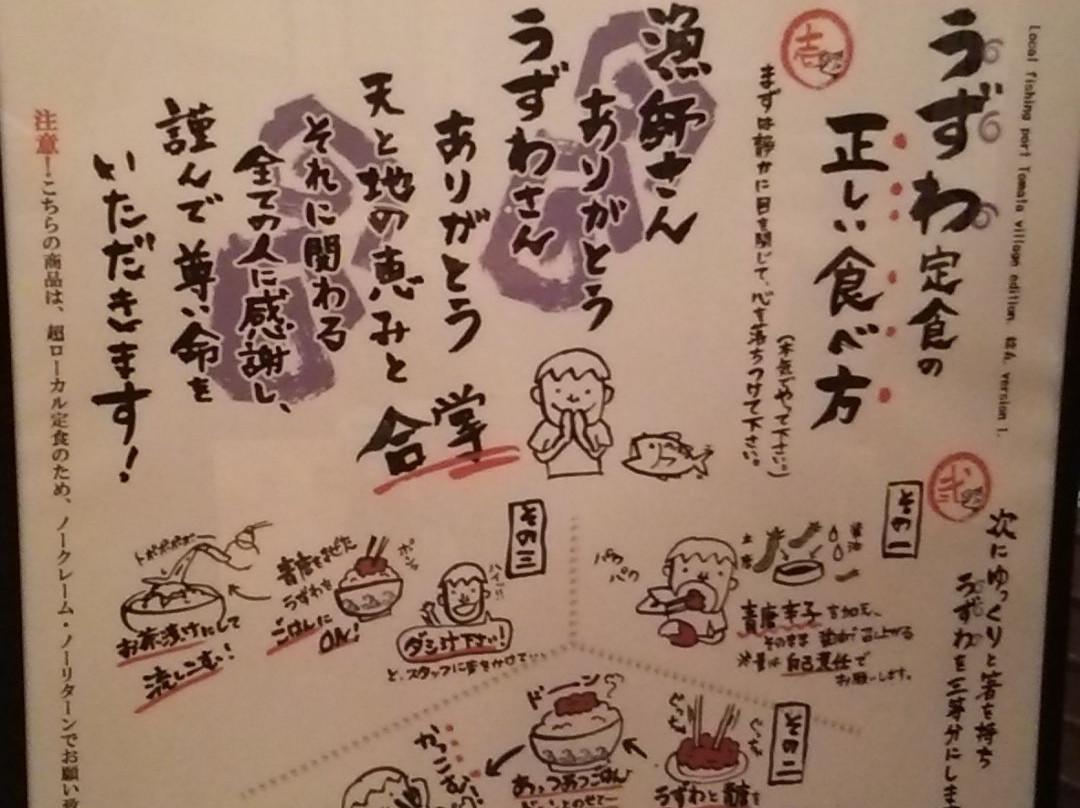 Local fishing port Tomato village edition. は6. version 1.
うずわ定食の
正しい食べ方
壱
まずは静かに目を閉じて、心を落ちつけて下さい。
(本気でやって下さい。)
漁師さん
ありがとう
うずわさん
ありがとう
天と地の恵みと
それに関わる
全ての人に感謝し、
謹んで尊い命を
いただきます!
合掌
弐
次にゆっくりと箸を持ち
うずわを三等分にしま
その一
醤油
パクパク
青唐辛子を加え、
そのまま
召し上がる
※量は自己責任で
お願いします。
その二
ぐっち
ぐっち
うずわと青唐を
ドーン
あっつあつごはん
かっこむ!
その三
ハイ!!
ダシ汁下さい!
と、スタッフに声をかけて…
ポン
青唐をまぜた
うずわを
ごはんに
ON!
トポポポポー
お茶漬けにして
流しこむ!
注意!こちらの商品は、超ローカル定食のため、ノークレーム・ノーリターンでお願い致